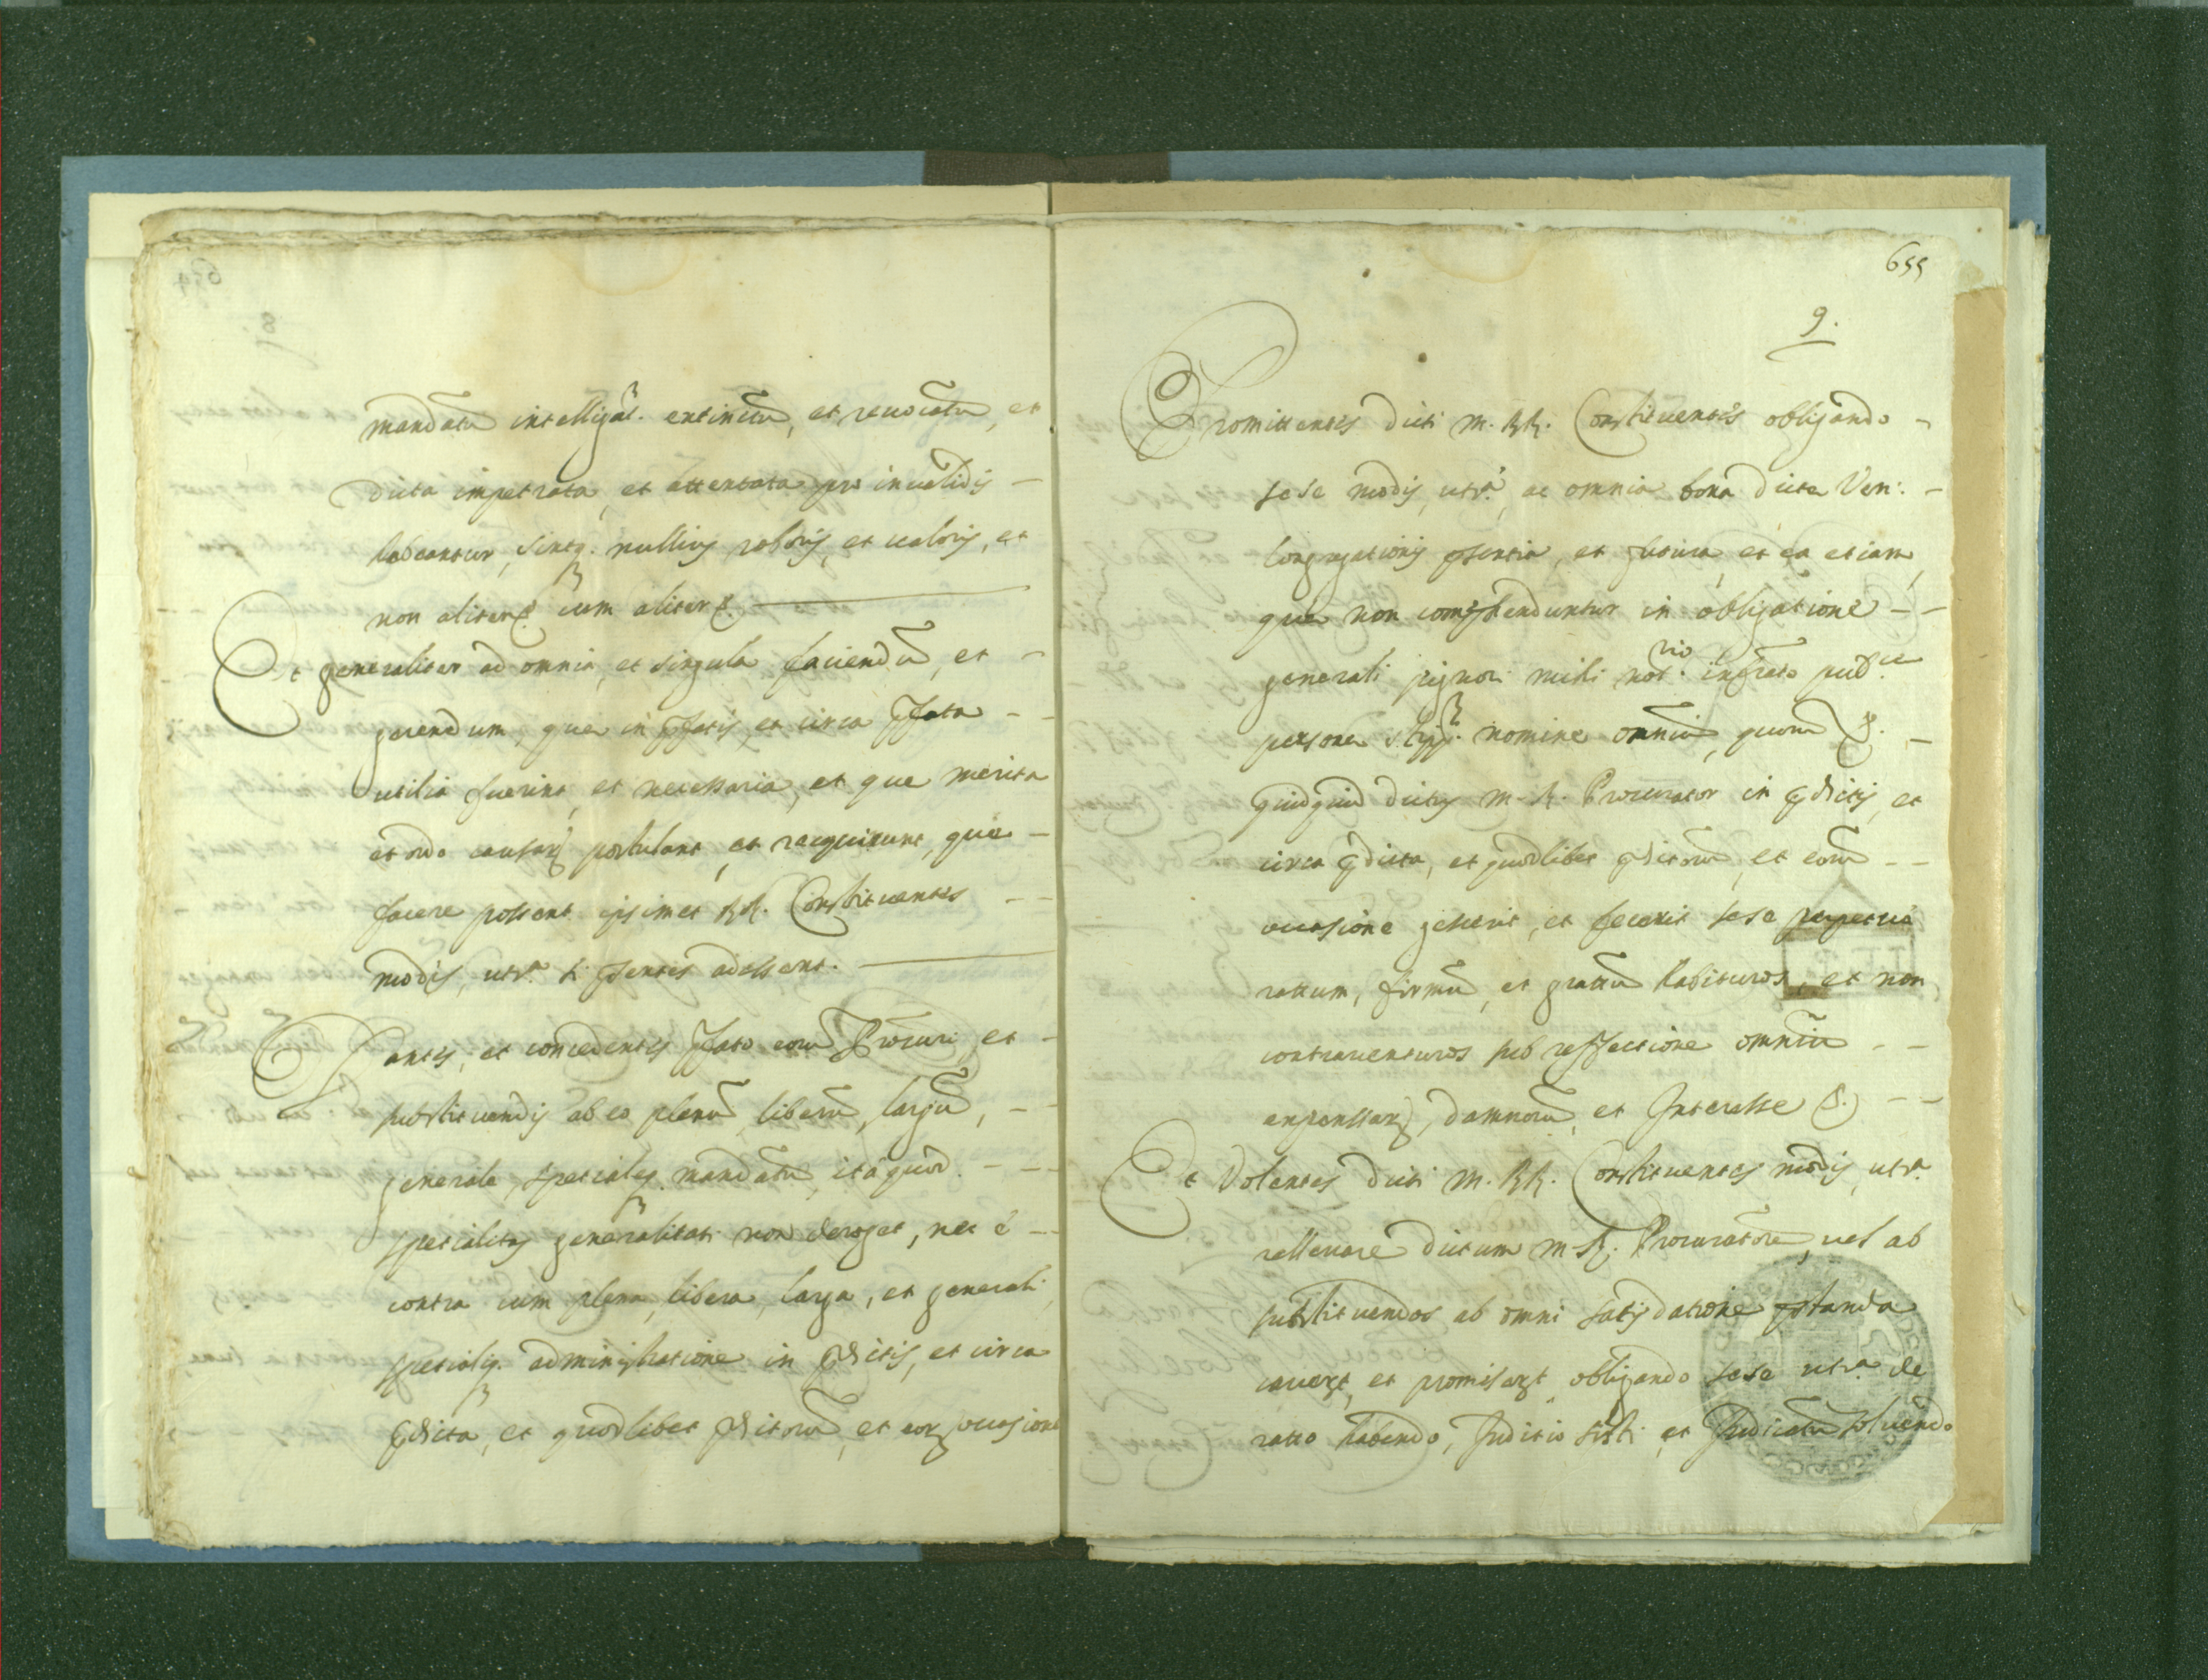 mandatũ intelligat. extinctũ, et reuocatũ, et
dicta impetrata, et attentata pro inualidis
habeantur, sintq. nullius roboris, et ualoris, et
non aliter &. cum aliter &.
Et generaliter ad omnia, et singula faciendũ, et
gerendum, que in pfatis, et circa pfata
utilia fuerint, et necessaria, et que merita
et ordo causarũ postulant, et raequirunt, que
facere possent ipsimet RR. Constituentes
modis, utsª. si psentes adessent.
Dantes, et concedentes pfato eorũ Procuri et
substituendis ab eo plenũ, liberũ, largũ,
generale, specialeq. mandatũ, ita quod
specialitas generalitati non deroget, nec è
contra cum plena, libera, larga, et generali,
specialiq. administratione in pdictis, et circa
pdicta, et quodlibet pdictorũ, et eorũ occasione
655
9.
Promittentes dicti M. RR. Constituentes obligando
sese modis, utsª. ac omnia bona dicta Ven:
Congregationis psentia, et futura, et ea etiam,
que non comphenduntur in obligatione
generali pignori mihi notrio. infrato pubce.
persone stipt. nomine omniũ, quorũ &.
quidquid dictus M. R. Procurator in pdictis, et
circa pdicta, et quodlibet pdictorũ, et eorũ
occasione gesserit, et fecerit sese perpetuò
rattum, firmũ, et grattũ habituros, et non
contrauenturos sub reffectione omniũ
expenssarũ, damnorũ, et Interesse &.
Et Volentes dicti M. RR. Constituentes modis, utsª.
relleuare dictum M. R. Procuratorẽ, uel ab
substituendos ab omni satisdatione pstanda
cauert, et promisert obligando sese utsª. de
ratto habendo, Iuditio sisti, et Iudicatũ soluendo